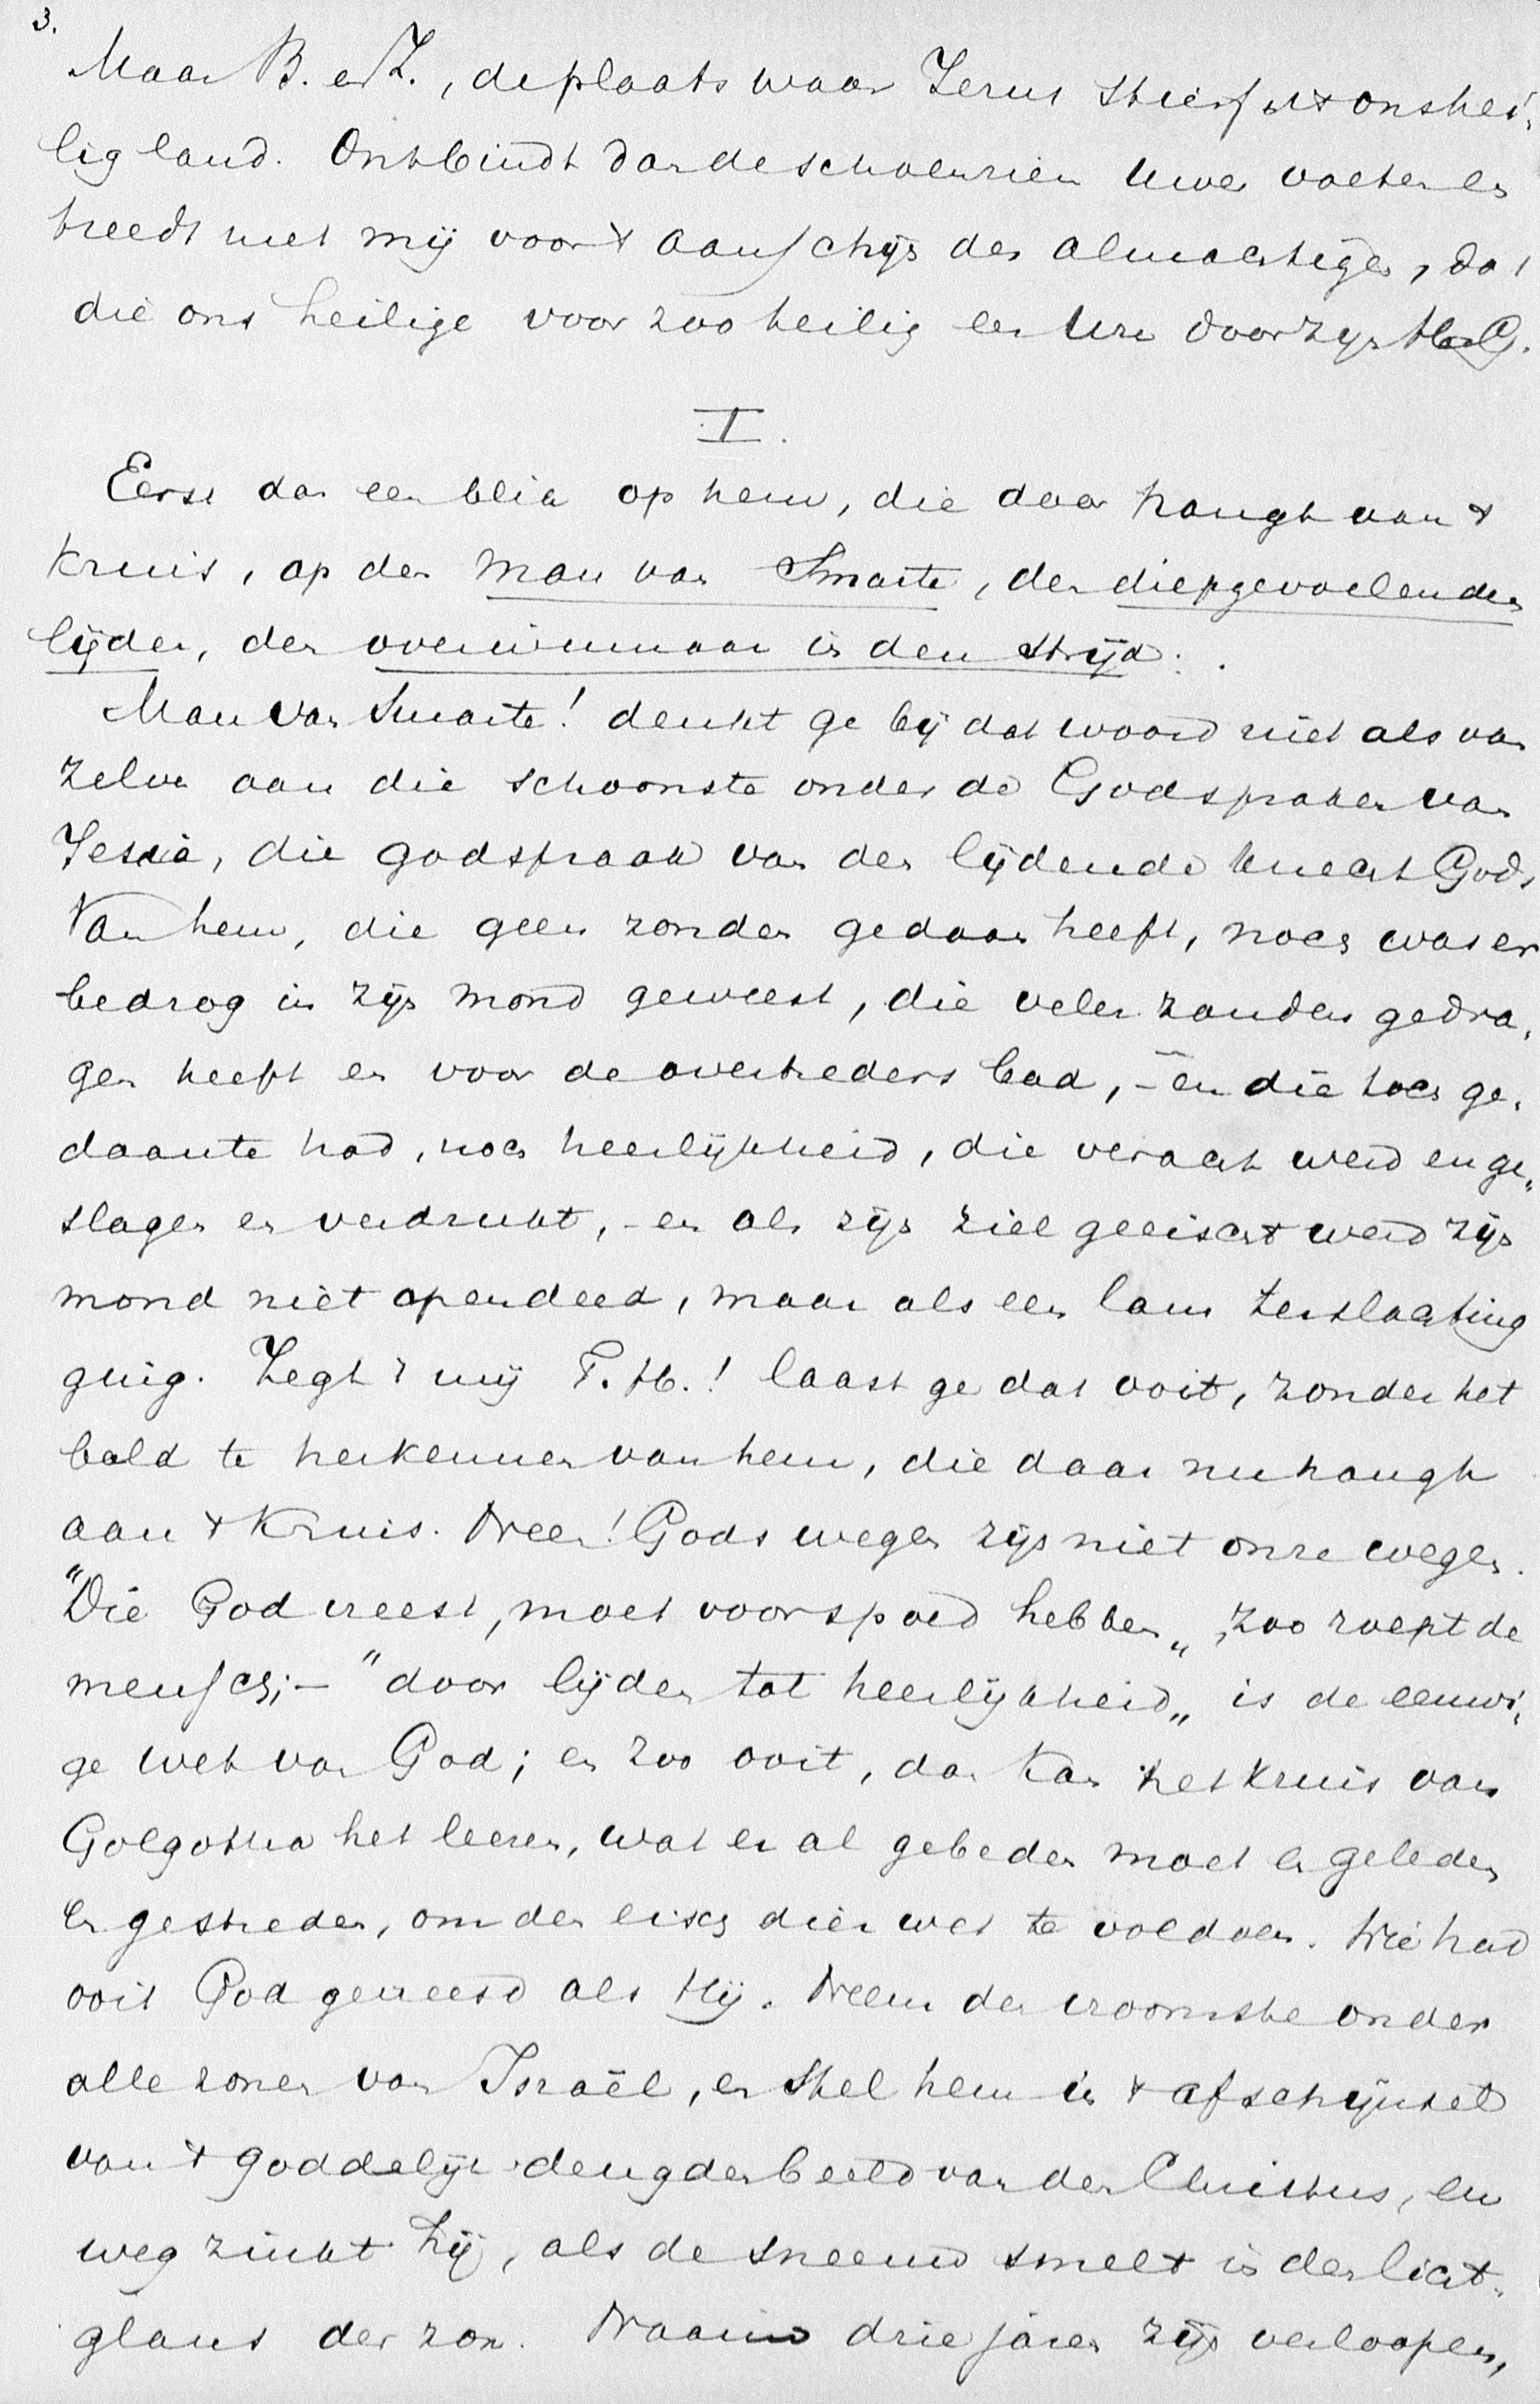 3.
Maar B. en Z., de plaats waar Jezus stierf is 't ons hei,
lig land. Ontbindt dan de schoenrien uwer voeten en
treedt met mij voor 't aanschijn des almachtigen, dat
die ons heilige voor zoo heilig een ure door zijn H. G.
I.
Eerst dan een blik op hem, die daar hangt aan 't
kruis, op den man van Smarte, den diepgevoelenden
lijder, den overwinnaar in den strijd.
Man van Smarte! denkt ge bij dat woord niet als van
zelve aan die schoonste onder de Godspraken van
Jesaia, die godspraak van den lijdende knecht Gods
Van hem, die geen zonden gedaan heeft, noch was er
bedrog in zijn mond geweest, die veler zonden gedra,
gen heeft en voor de overtreders bad, – en die toch ge,
daante had, noch heerlijkheid, die veracht werd en ge,
slagen en verdrukt, – en als zijn ziel geeischt werd zijn
mond niet opendeed, maar als een lam ter slachting
ging. Zegt 't mij T. H.! laast ge dat ooit, zonder het
beeld te herkennen van hem, die daar nu hangt
aan 't Kruis. Neen! Gods wegen zijn niet onze wegen.
"Die God vreest, moet voorspoed hebben„ zoo roept de
mensch; – "door lijden tot heerlijkheid„ is de eeuwi,
ge wet van God; en zoo ooit, dan kan het kruis van
Golgotha het leeren, wat er al gebeden moet en geleden
en gestreden, om den eisch dier wet te voldoen. Wie had
ooit God gevreesd als Hij. Neem den vroomste onder
alle zonen van Israël, en stel hem in 't afschijnsel
van 't goddelijk deugdenbeeld van den Christus, en
weg zinkt hij, als de sneeuw smelt in den licht-
glans der zon. Naauw drie jaren zijn verloopen,